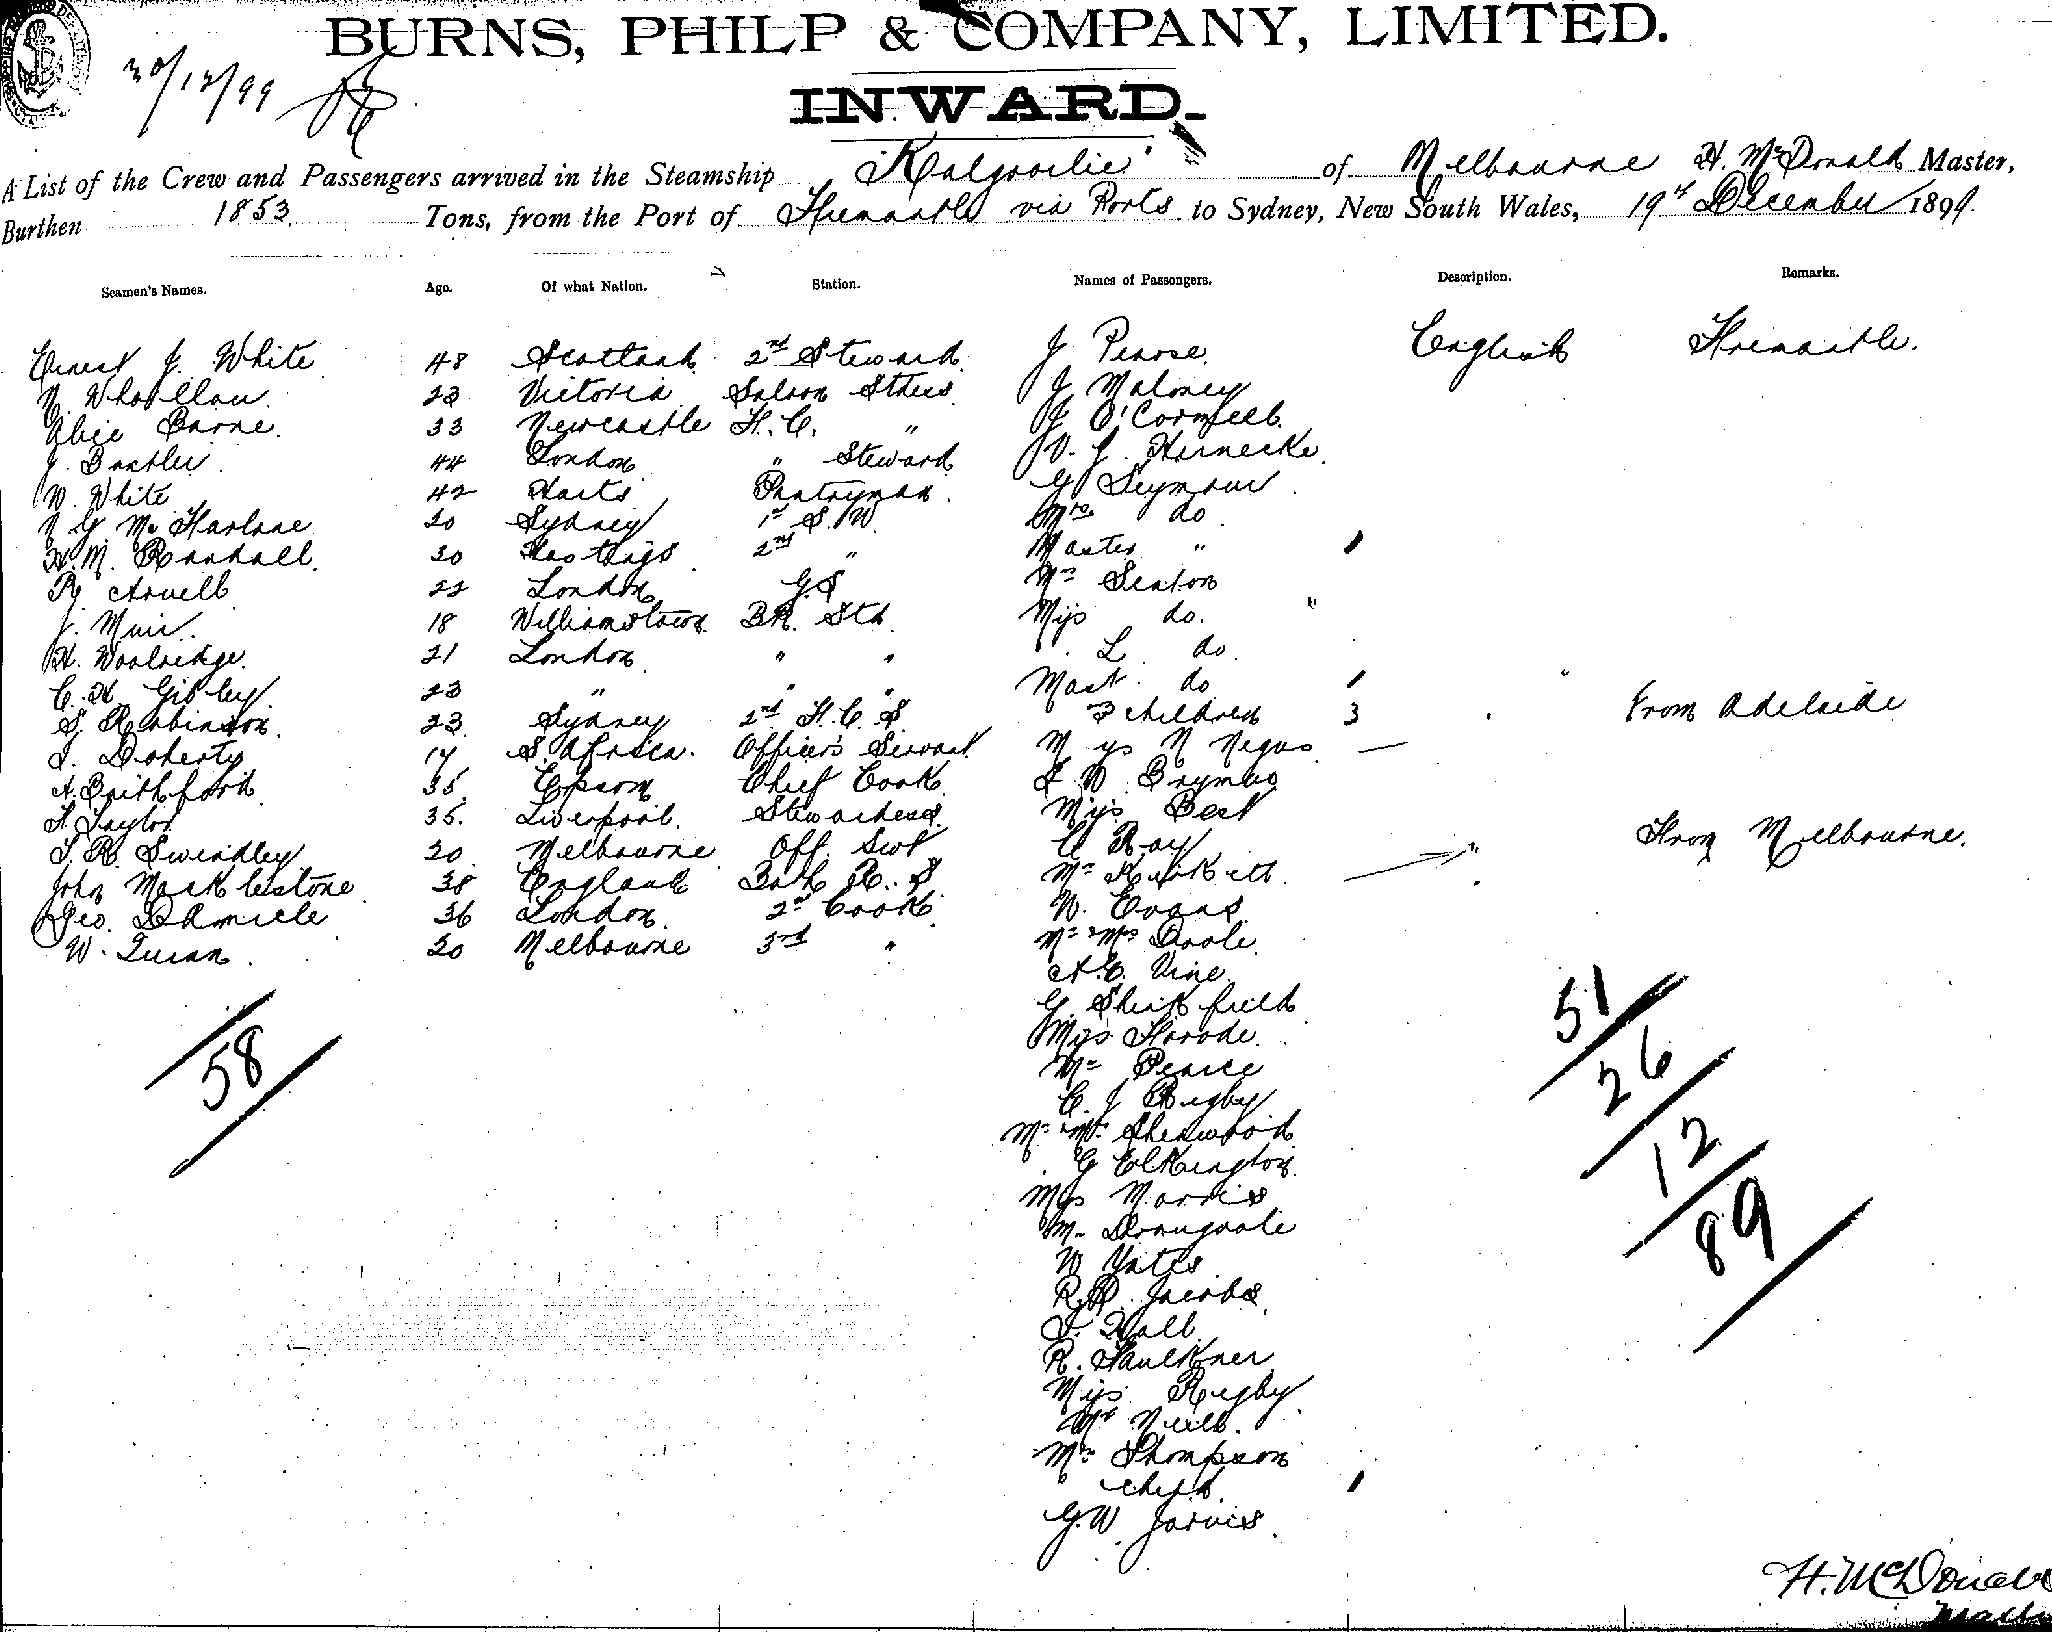 BURNS, PHILP & COMPANY, LIMITED.
20/12/99
INWARD.
A List of the Crew and Passengers arrived in the Steamship "Kalgoorlie" of Melbourne H. McDonald Master,
Burthen 1853 Tons, from the Port of Fremantle via Ports to Sydney, New South Wales, 19th December 1899.
Seamen's Names. Age. Of what Nation. Station. Names of Passengers. Description. Remarks.
Ernest J. White 48 Scotland 2nd Steward J Pearse English Fremantle.
23 Victoria Saloon J Maloney
Alice 33 Newcastle F.C. " J
J. 44 London " Steward
W. White 42 Pantryman. G Seymour
McFarlane 20 Sydney 1st S.W. Mrs do
H. M. Randall. 20 Hastings 2nd " Master "
22 London G.S Mrs Seaton
J. Muir. 18 Williamstown BR. Std Miss do. "
H. Woolridge. 21 London " " L do.
C. H Gibley 23 " " " Mast. do
S. Robinson. 23 Sydney 2nd F.C.S. 3 children 3 From Adelaide
Doherty 17 S. Africa. Officer's Servant Miss N Negus
A. 35 Epsom Chief Cook
Taylor 35. Liverpool. Stewardess. Miss Best
Swindley 20 Melbourne Off. Servt C Ray " From Melbourne.
John Macklestone 38 England Bath R. S
Geo. 36 London. 2nd Cook W. Evans
W. Quinn. 20 Melbourne 3rd " Mr & Mrs Poole
A.C. Vine
G. Sheikfield
Miss
Mr Pearce
C. J Rigby
Mr & Mrs Sherwood
G Elkington.
Miss Morris
W Yates
Jacobs
Hall
R. Faulkner
Miss Rigby
Mr Neill.
Mrs Thompson
" child.
G.W. Jarvis
58
51
26
12
89
H. McDonald
Master